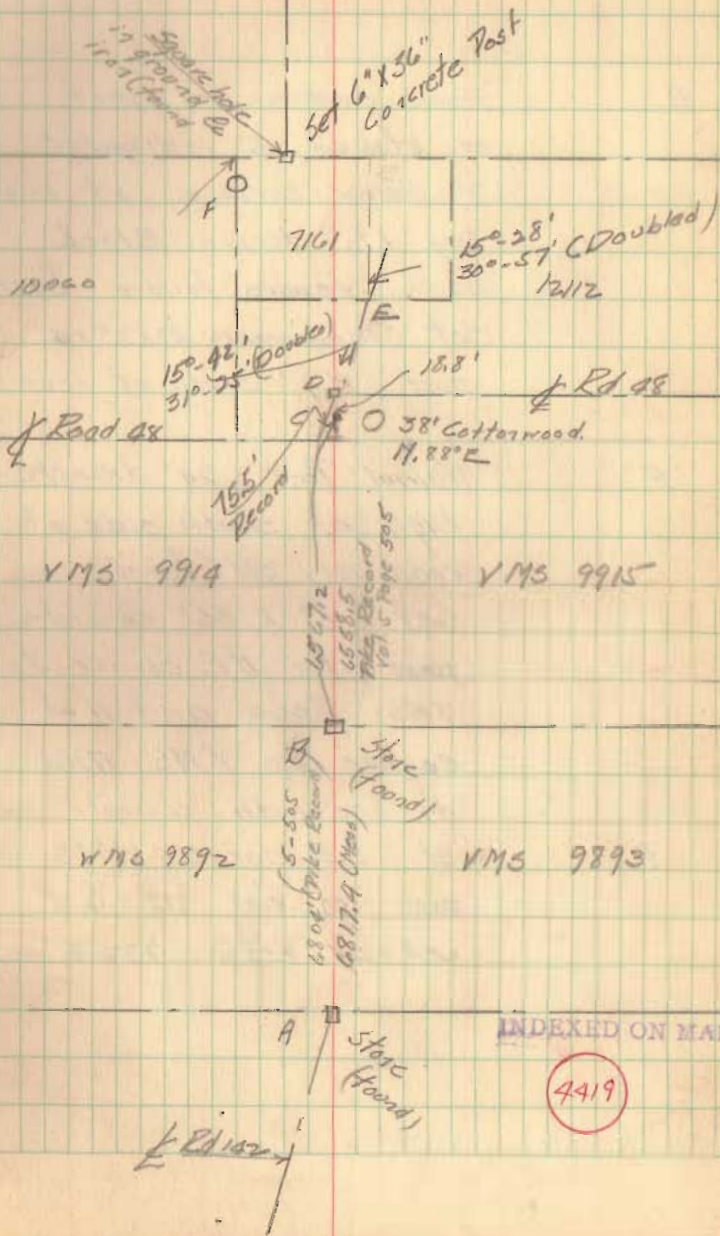 Square hole
in ground &
iron (found
Set 6" X 36"
Concrete Post
F
7161
15°-28'
30°-57' (Doubled)
10060
12112
E
15°-42'
31°-25' (Doubled)
H
D
18.8'
℄ Rd 48
C
38" Cottonwood
N.88°E
℄ Road 48
75.5'
Record
VMS 9914
VMS 9915
6567.2
6558.5
Pike Record
Vol 5 Page 505
B
Stone
(found)
VMS 9892
VMS 9893
5-505
6804' (Pike Record)
6817.9 (Meas)
A
Stone
(found)
INDEXED ON MA
4419
℄ Rd 142